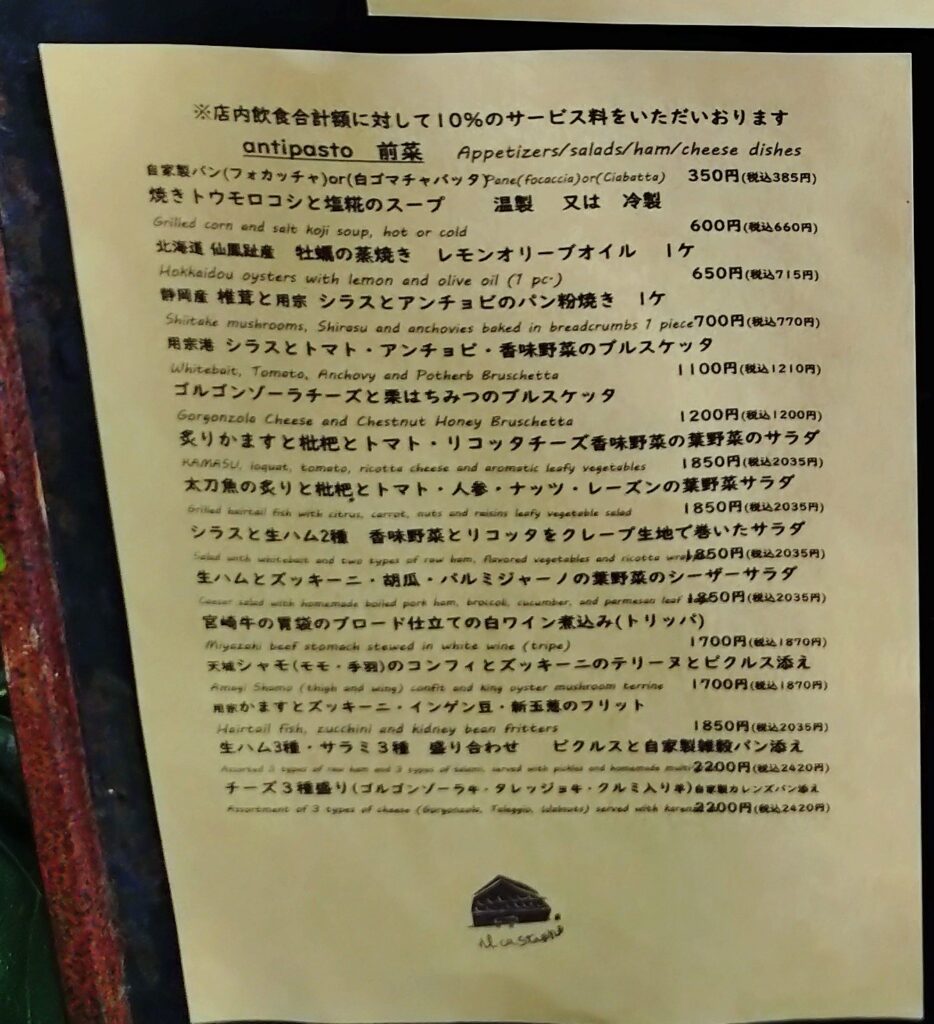 ※店内飲食合計額に対して10%のサービス料をいただいおります
antipasto 前菜 Appetizers/salads/ham/cheese dishes
自家製パン(フォカッチャ)or(白ゴマチャバッタ)Pane(focaccia)or(Ciabatta) 350円(税込385円)
焼きトウモロコシと塩糀のスープ 温製 又は 冷製
Grilled corn and salt koji soup, hot or cold 600円(税込660円)
北海道 仙鳳趾産 牡蠣の蒸焼き レモンオリーブオイル 1ケ
Hokkaidou oysters with lemon and olive oil (1 pc.) 650円(税込715円)
静岡産 椎茸と用宗 シラスとアンチョビのパン粉焼き 1ケ
Shiitake mushrooms, Shirasu and anchovies baked in breadcrumbs 1 piece 700円(税込770円)
用宗港 シラスとトマト・アンチョビ・香味野菜のブルスケッタ
Whitebait, Tomato, Anchovy and Potherb Bruschetta 1100円(税込1210円)
ゴルゴンゾーラチーズと栗はちみつのブルスケッタ
Gorgonzola Cheese and Chestnut Honey Bruschetta 1200円(税込1200円)
炙りかますと枇杷とトマト・リコッタチーズ香味野菜の葉野菜のサラダ
KAMASU, loquat, tomato, ricotta cheese and aromatic leafy vegetables 1850円(税込2035円)
太刀魚の炙りと枇杷とトマト・人参・ナッツ・レーズンの葉野菜サラダ
Grilled hairtail fish with citrus, carrot, nuts and raisins leafy vegetable salad 1850円(税込2035円)
シラスと生ハム2種 香味野菜とリコッタをクレープ生地で巻いたサラダ
Salad with whitebait and two types of raw ham, flavored vegetables and ricotta 1850円(税込2035円)
生ハムとズッキーニ・胡瓜・パルミジャーノの葉野菜のシーザーサラダ
Caesar salad with homemade boiled pork ham, broccoli, cucumber, and parmesan leaf 1850円(税込2035円)
宮崎牛の胃袋のブロード仕立ての白ワイン煮込み(トリッパ)
Miyazaki beef stomach stewed in white wine (tripe) 1700円(税込1870円)
天城シャモ(モモ・手羽)のコンフィとズッキーニのテリーヌとピクルス添え
Amagi Shamo (thigh and wing) confit and king oyster mushroom terrine 1700円(税込1870円)
用宗かますとズッキーニ・インゲン豆・新玉葱のフリット
Hairtail fish, zucchini and kidney bean fritters 1850円(税込2035円)
生ハム3種・サラミ3種 盛り合わせ ピクルスと自家製雑穀パン添え
Assorted 3 types of raw ham and 3 types of salami, served with pickles and homemade 2200円(税込2420円)
チーズ3種盛り(ゴルゴンゾーラ牛・タレッジョ牛・クルミ入り羊)自家製カレンズパン添え
Assortment of 3 types of cheese (Gorgonzola, Taleggio, walnuts) served with 2200円(税込2420円)